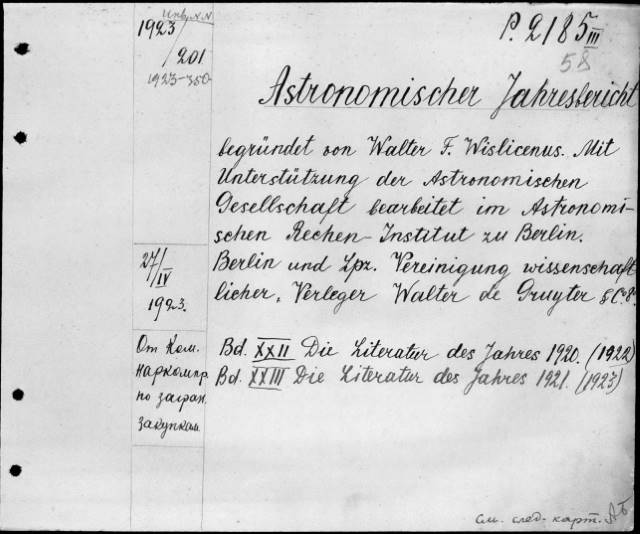 1923
Инв. N.N
201
1923-350
P. 2185 III
58
Astronomischer Jahresbericht
begründet von Walter F. Wislicenus. Mit
Unterstützung der Astronomischen
Gesellschaft bearbeitet im Astronomi-
schen Rechen-Institut zu Berlin.
Berlin und Lpz. Vereinigung wissenschaft
licher, Verleger Walter de Gruyter & C° 8°
27/IV
1923.
От Ком.
Наркомпр.
по загран.
закупкам.
Bd. XXII Die Literatur des Jahres 1920. (1922)
Bd. XXIII Die Literatur des Jahres 1921. (1923)
См. след. карт.